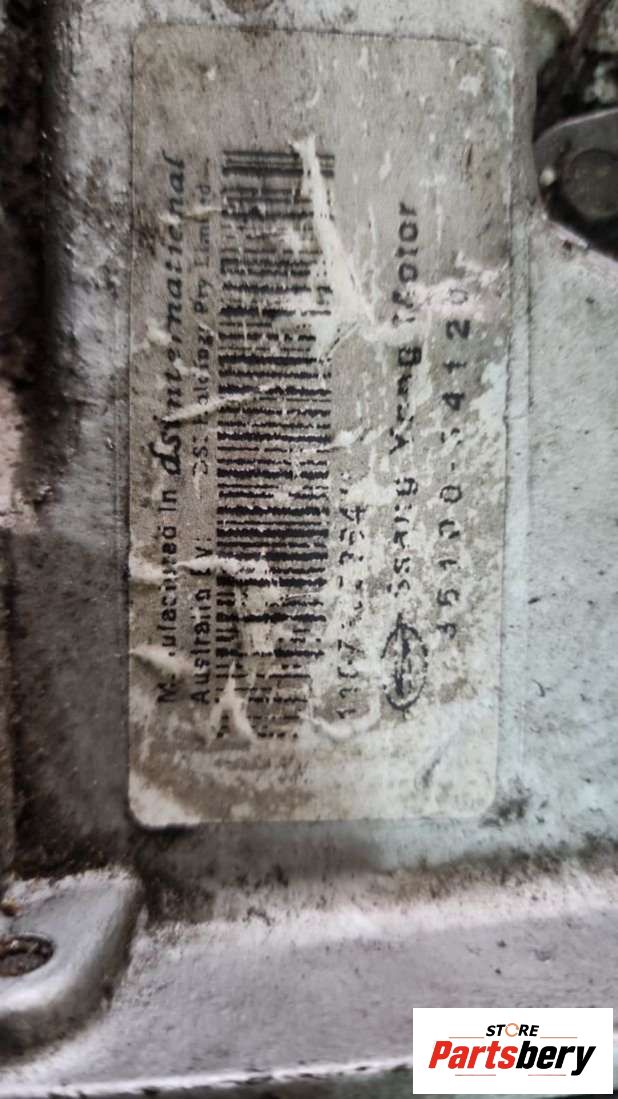 Manufactured in dsi international
Australia By: DSI Holdings Pty Limited
Ssang Yong Motor
STORE
Partsbery